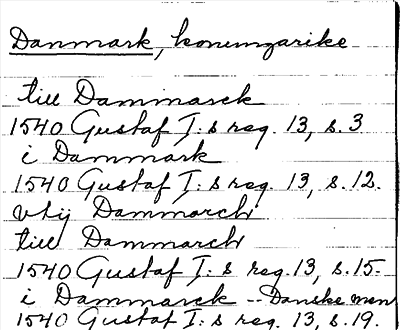 Danmark, konungarike
till Dammarck
1540 Gustaf I:s reg. 13, s.3
i Dammark
1540 Gustaf I:s reg. 13, s.12.
vtij Dammarch
till Dammarch
1540 Gustaf I:s reg. 13, s.15.
i Dammarck -- Danske men
1540 Gustaf I:s reg. 13, s.19.